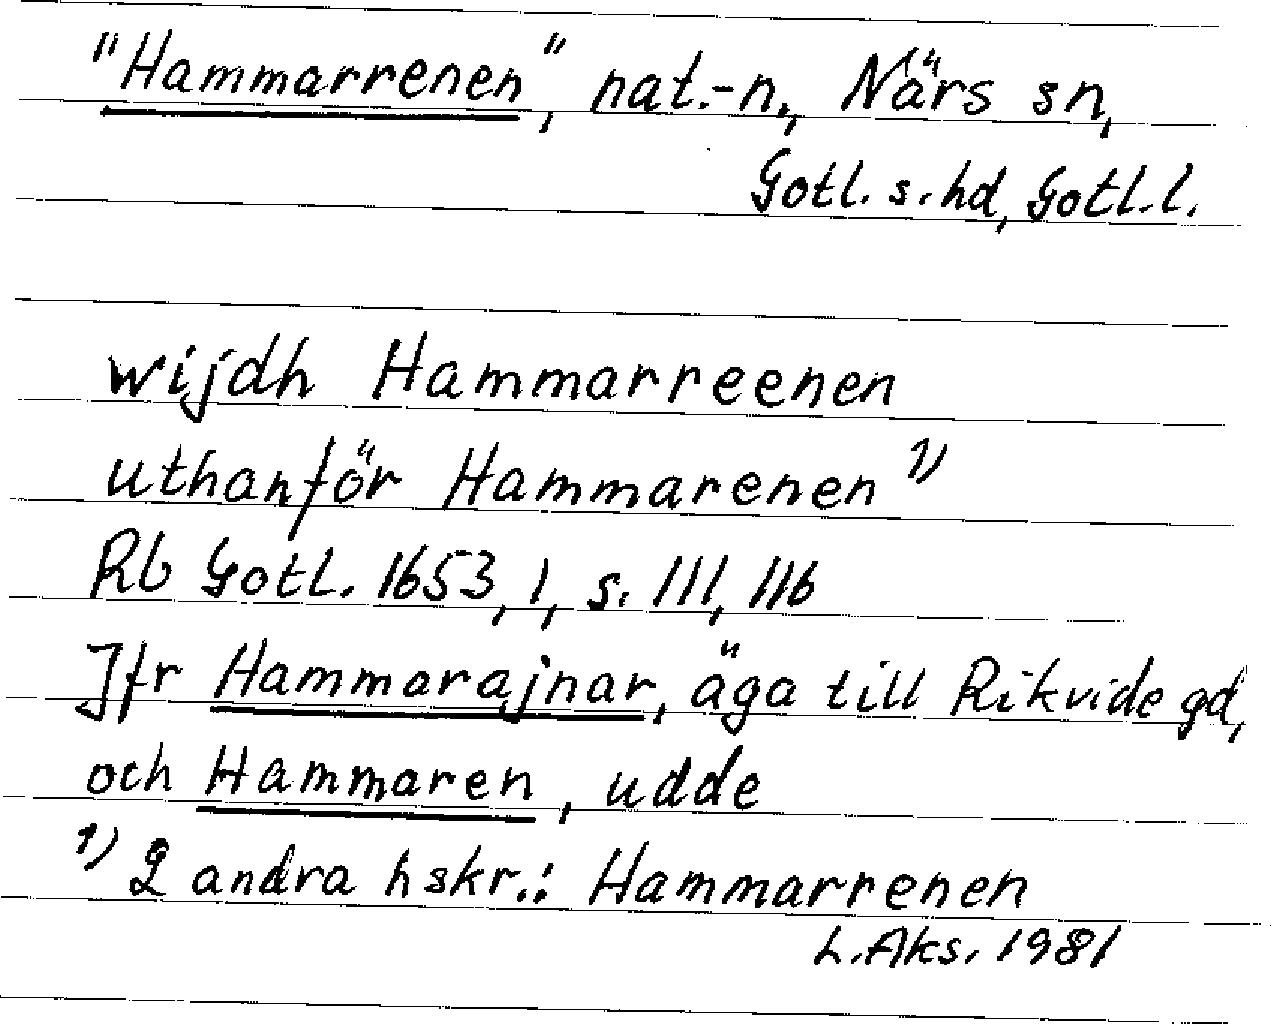 "Hammarrenen", nat.-n., Närs sn,
Gotl. s. hd, Gotl. l.
wijdh Hammarreenen
uthanför Hammarenen 1)
Rb Gotl. 1653, 1, s. 111, 116
Jfr Hammarajnar, äga till Rikvide gd,
och Hammaren, udde
1) 2 andra hskr.: Hammarrenen
L. Aks. 1981